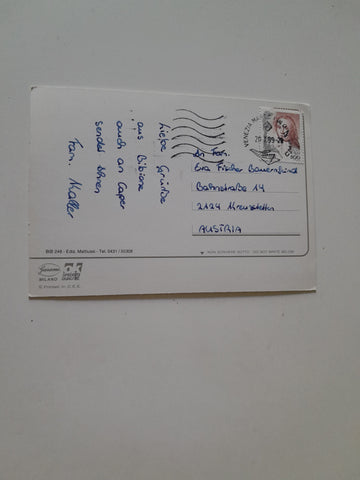 Liebe Grüße
aus Bibione
auch an Caper
sendet Ihnen
Fam. Maller
VENEZIA
An Fam.
Eva Fischer Bauernfeind
Bahnstraße 14
2124 Kreuzstetten
AUSTRIA
NON SCRIVERE SOTTO - DO NOT WRITE BELOW
BIB 248 - Ediz. Mattiussi - Tel. 0431 /
MILANO
Printed in C.E.E.